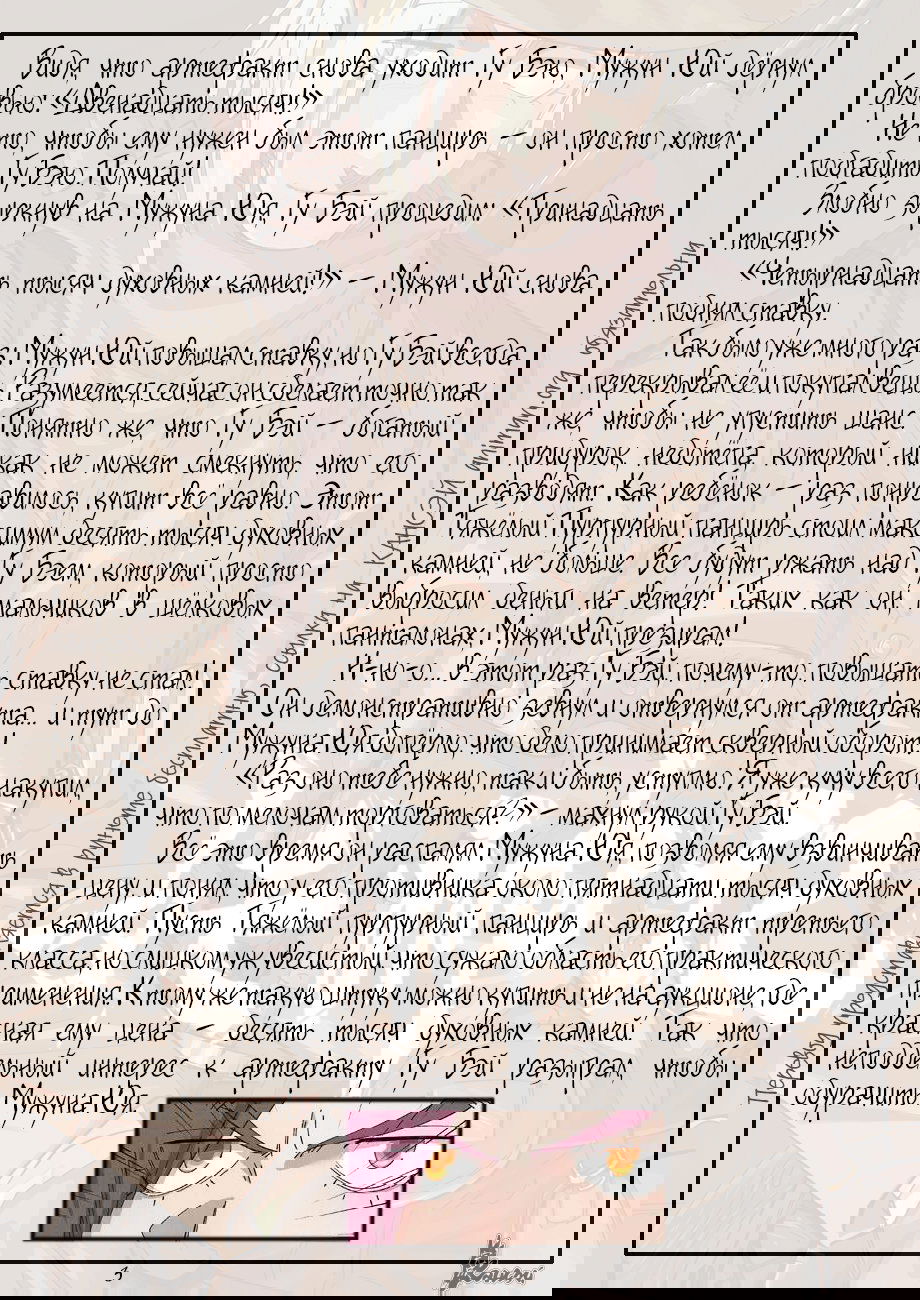 Видя, что артефакт снова уходит Гу Бэю, Мужун Юй дёрнул
бровью: «Двенадцать тысяч!»
Не то, чтобы ему нужен был этот панцирь -- он просто хотел
подгадить Гу Бэю. Получай!
Злобно зыркнув на Мужуна Юя, Гу Бэй процедил «Тринадцать
тысяч!»
«Четырнадцать тысяч духовных камней!» -- Мужун Юй снова
поднял ставку.
Так было уже много раз: Мужун Юй повышал ставку, но Гу Бэй всегда
перекрывал её и покупал вещь. Разумеется, сейчас он сделает точно так
же, чтобы не упустить шанс. Понятно же, что Гу Бэй -- богатый
придурок, недотёпа, который никак не может смекнуть, что его
разводят. Как ребёнок -- раз понравилось, купит всё равно. Этот
Тяжёлый Пурпурный панцирь стоил максимум десять тысяч духовных
камней, не больше. Все будут ржать над Гу Бэем, который просто
выбросил деньги на ветер! Таких как он, мальчиков в шёлковых
панталонах, Мужун Юй презирал!
Н-но-о... в этот раз Гу Бэй, почему-то, повышать ставку не стал!
Он демонстративно зевнул и отвернулся от артефакта... и тут до
Мужуна Юя допёрло, что дело принимает скверный оборот!
«Раз оно тебе нужно, так и быть, уступлю. Я уже кучу всего накупил,
что по мелочам торговаться?» - махнул рукой Гу Бэй.
Всё это время он распалял Мужуна Юя, позволяя ему взвинчивать
цену и понял, что у его противника около пятнадцати тысяч духовных
камней. Пусть Тяжёлый пурпурный панцирь и артефакт третьего
класса, но слишком уж увесистый, что сужало область его практического
применения. К тому же такую штуку можно купить и не на аукционе, где
красная ему цена - десять тысяч духовных камней. Так что
неподдельный интерес к артефакту Гу Бэй разыграл, чтобы
одурачить Мужуна Юя.
Перевод исключительно
ссылки на КАНСЭЙ
обязательны